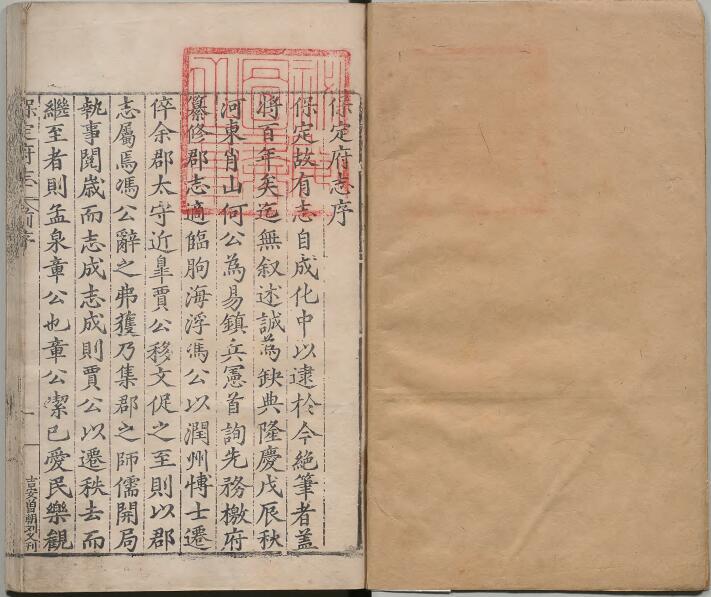 保定府志序
保定故有志自成化中以逮於今絶筆者蓋
將百年矣迄無叙述誠為缺典隆慶戊辰秋
河東肖山何公為易鎮兵憲首詢先務檄府
纂修郡志適臨朐海浮馮公以潤州愽士遷
倅余郡太守近臯賈公移文促之至則以郡
志屬焉馮公辭之弗獲乃集郡之師儒開局
執事閱歲而志成志成則賈公以遷秩去而
繼至者則孟泉章公也章公潔已愛民樂觀
保定府志 前序
一
吉安曾朝刊